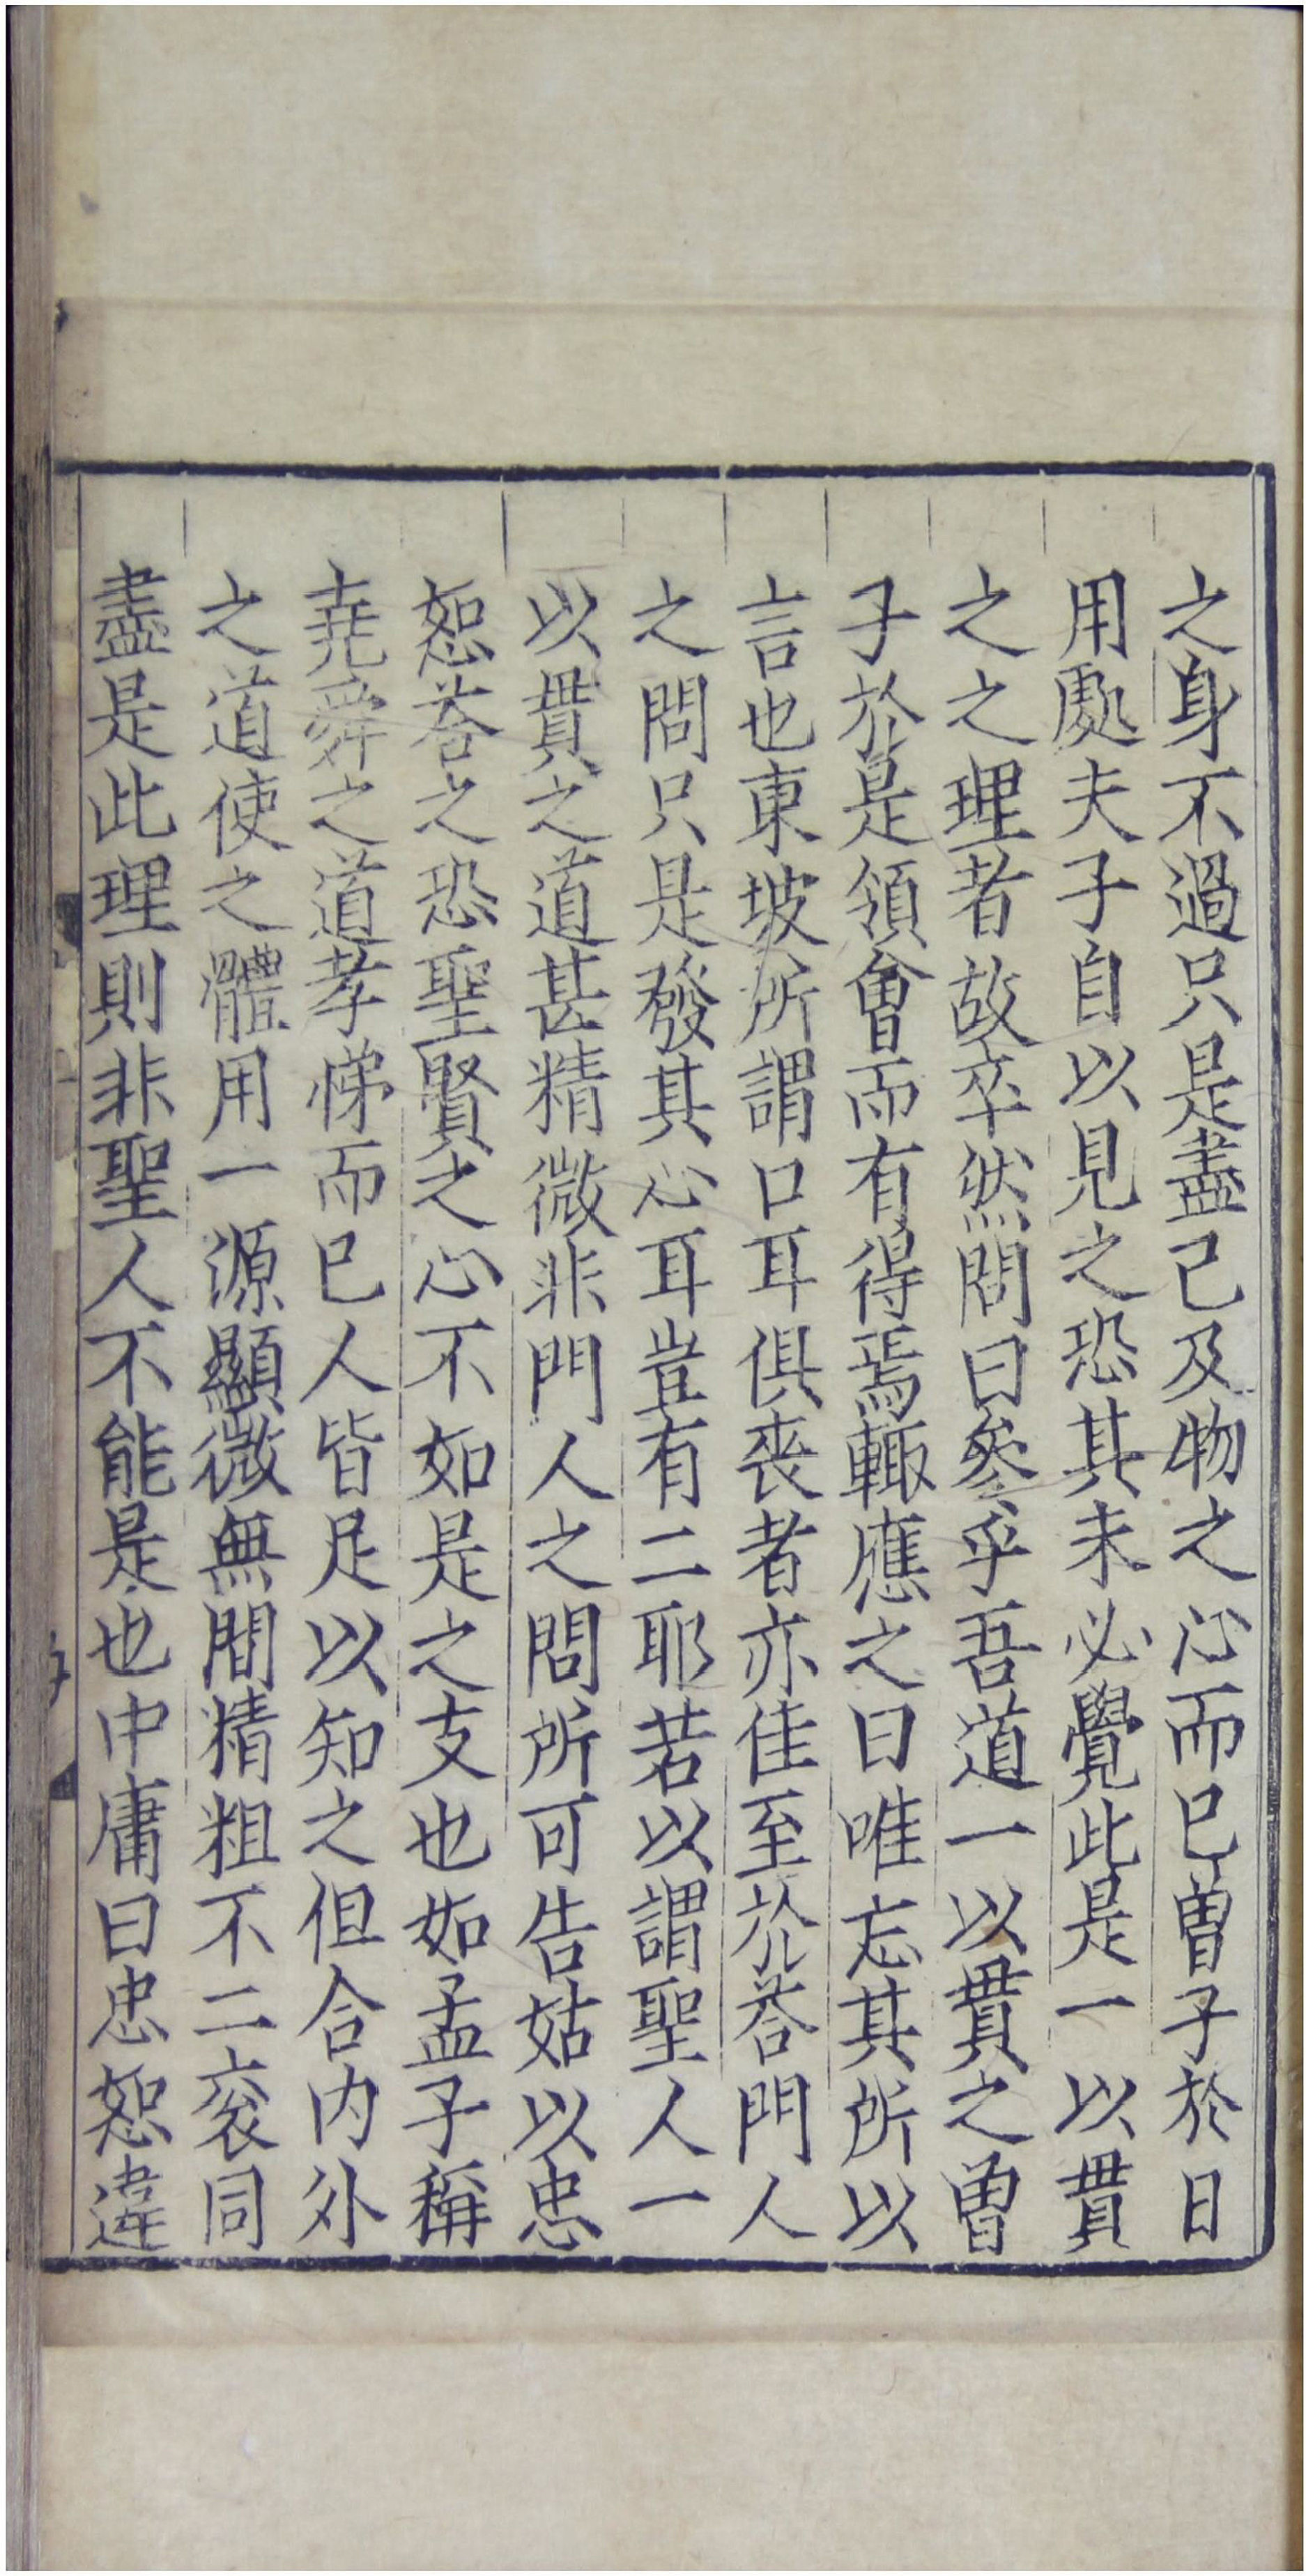 之身不過只是盡己及物之心而已曽子於日
用處夫子自以見之恐其未必覺此是一以貫
之之理者故卒然問曰參乎吾道一以貫之曽
子於是領會而有得焉輙應之曰唯忘其所以
言也東坡所謂口耳俱喪者亦佳至於荅門人
之問只是發其心耳豈有二耶若以謂聖人一
以貫之之道甚精微非門人之問所可告姑以忠
恕荅之恐聖賢之心不如是之支也如孟子稱
堯舜之道孝悌而已人皆足以知之但合内外
之道使之體用一源顯微無間精粗不二衮同
盡是此理則非聖人不能是也中庸曰忠恕違